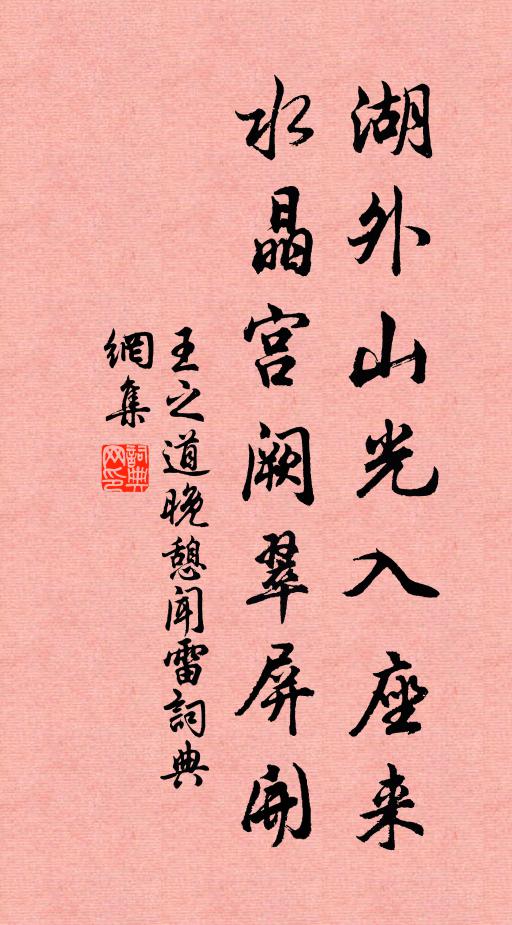 湖外山光入座来
水晶宫阙翠屏開
王之道晚憩闻雷詞典
網集
詞典
网印